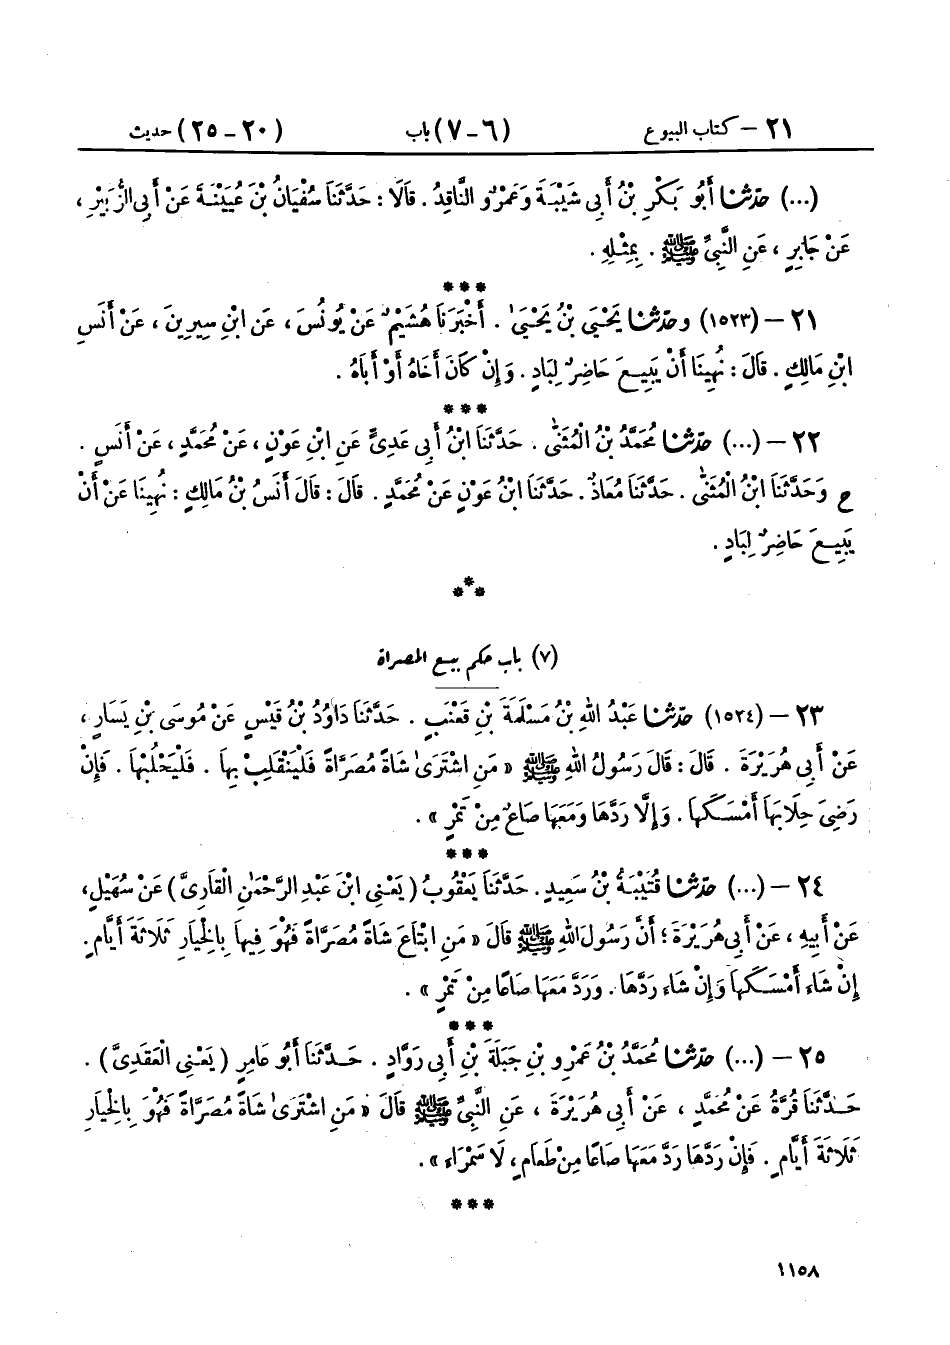 ٢١ – كتاب البيوع (٦ – ٧) باب (٢٠ – ٢٥) حديث
(...) حَدَّثَنَا أَبُو بَكْرِ بْنُ أَبِي شَيْبَةَ وَعَمْرٌو النَّاقِدُ . قَالَا : حَدَّثَنَا سُفْيَانُ بْنُ عُيَيْنَةَ عَنْ أَبِي الزُّبَيْرِ ،
عَنْ جَابِرٍ ، عَنِ النَّبِيِّ ﷺ . بِمِثْلِهِ .
***
٢١ – (١٥٢٣) وَحَدَّثَنَا يَحْيَى بْنُ يَحْيَىٰ . أَخْبَرَنَا هُشَيْمٌ عَنْ يُونُسَ ، عَنِ ابْنِ سِيرِينَ ، عَنْ أَنَسِ
ابْنِ مَالِكٍ . قَالَ : نُهِينَا أَنْ يَبِيعَ حَاضِرٌ لِبَادٍ . وَإِنْ كَانَ أَخَاهُ أَوْ أَبَاهُ .
***
٢٢ – (...) حَدَّثَنَا مُحَمَّدُ بْنُ الْمُثَنَّىٰ . حَدَّثَنَا ابْنُ أَبِي عَدِيٍّ عَنِ ابْنِ عَوْنٍ ، عَنْ مُحَمَّدٍ ، عَنْ أَنَسٍ .
ح وَحَدَّثَنَا ابْنُ الْمُثَنَّىٰ . حَدَّثَنَا مُعَاذٌ . حَدَّثَنَا ابْنُ عَوْنٍ عَنْ مُحَمَّدٍ . قَالَ : قَالَ أَنَسُ بْنُ مَالِكٍ : نُهِينَا عَنْ أَنْ
يَبِيعَ حَاضِرٌ لِبَادٍ .
***
(٧) باب حكم بيع المصراة
٢٣ – (١٥٢٤) حَدَّثَنَا عَبْدُ اللهِ بْنُ مَسْلَمَةَ بْنِ قَعْنَبٍ . حَدَّثَنَا دَاوُدُ بْنُ قَيْسٍ عَنْ مُوسَى بْنِ يَسَارٍ ،
عَنْ أَبِي هُرَيْرَةَ . قَالَ : قَالَ رَسُولُ اللهِ ﷺ « مَنِ اشْتَرَىٰ شَاةً مُصَرَّاةً فَلْيَنْقَلِبْ بِهَا . فَلْيَحْلُبْهَا . فَإِنْ
رَضِيَ حِلَابَهَا أَمْسَكَهَا . وَإِلَّا رَدَّهَا وَمَعَهَا صَاعٌ مِنْ تَمْرٍ » .
***
٢٤ – (...) حَدَّثَنَا قُتَيْبَةُ بْنُ سَعِيدٍ . حَدَّثَنَا يَعْقُوبُ ( يَعْنِي ابْنَ عَبْدِ الرَّحْمَٰنِ الْقَارِيَّ ) عَنْ سُهَيْلٍ ،
عَنْ أَبِيهِ ، عَنْ أَبِي هُرَيْرَةَ ؛ أَنَّ رَسُولَ اللهِ ﷺ قَالَ « مَنِ ابْتَاعَ شَاةً مُصَرَّاةً فَهُوَ فِيهَا بِالْخِيَارِ ثَلَاثَةَ أَيَّامٍ .
إِنْ شَاءَ أَمْسَكَهَا وَإِنْ شَاءَ رَدَّهَا . وَرَدَّ مَعَهَا صَاعًا مِنْ تَمْرٍ » .
***
٢٥ – (...) حَدَّثَنَا مُحَمَّدُ بْنُ عَمْرِو بْنِ جَبَلَةَ بْنِ أَبِي رَوَّادٍ . حَدَّثَنَا أَبُو عَامِرٍ ( يَعْنِي الْعَقَدِيَّ ) .
حَدَّثَنَا قُرَّةُ عَنْ مُحَمَّدٍ ، عَنْ أَبِي هُرَيْرَةَ ، عَنِ النَّبِيِّ ﷺ قَالَ « مَنِ اشْتَرَىٰ شَاةً مُصَرَّاةً فَهُوَ بِالْخِيَارِ
ثَلَاثَةَ أَيَّامٍ . فَإِنْ رَدَّهَا رَدَّ مَعَهَا صَاعًا مِنْ طَعَامٍ ، لَا سَمْرَاءَ » .
***
١١٥٨